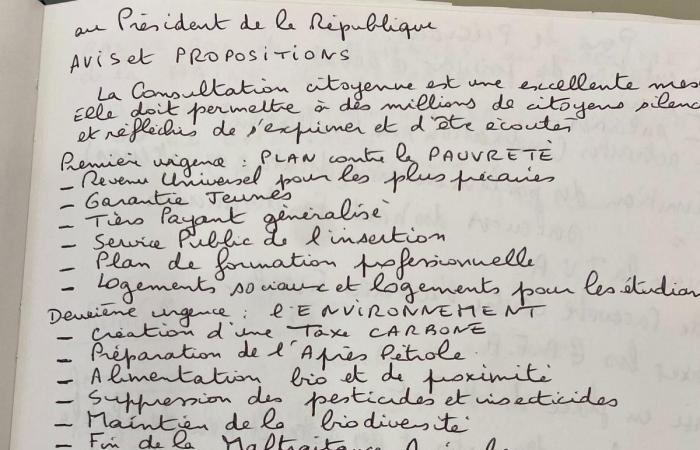 au Président de la République
AVIS et PROPOSITIONS
La Consultation citoyenne est une excellente
Elle doit permettre à des millions de citoyens
et réfléchis de s'exprimer et d'être écoutés
Première urgence : PLAN contre la PAUVRETÉ
— Revenu Universel pour les plus précaires
— Garantie Jeunes
— Tiers Payant généralisé
— Service Public de l'insertion
— Plan de formation professionnelle
— Logements sociaux et logements pour les
Deuxième urgence : l'ENVIRONNEMENT
— Création d'une Taxe CARBONE
— Préparation de l'Après Pétrole.
— Alimentation bio et de proximité
— Suppression des pesticides et insecticides
— Maintien de la biodiversité
— Fin de la Maltraitance